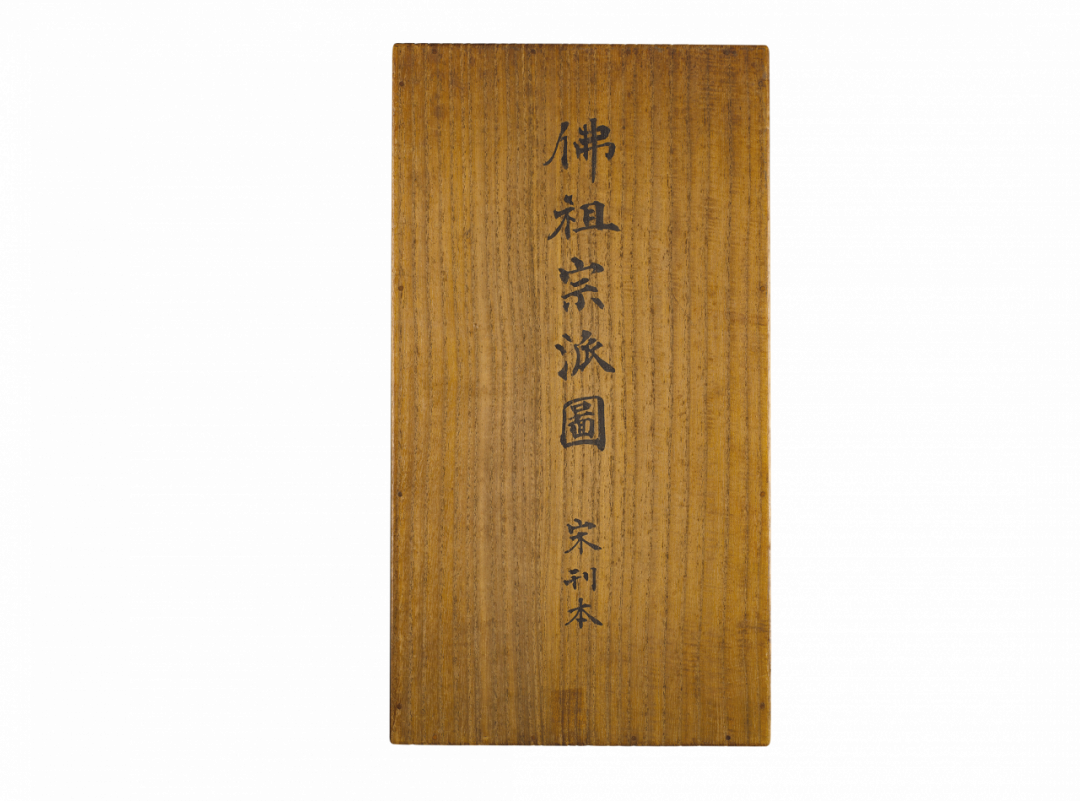 佛祖宗派圖
宋刊本